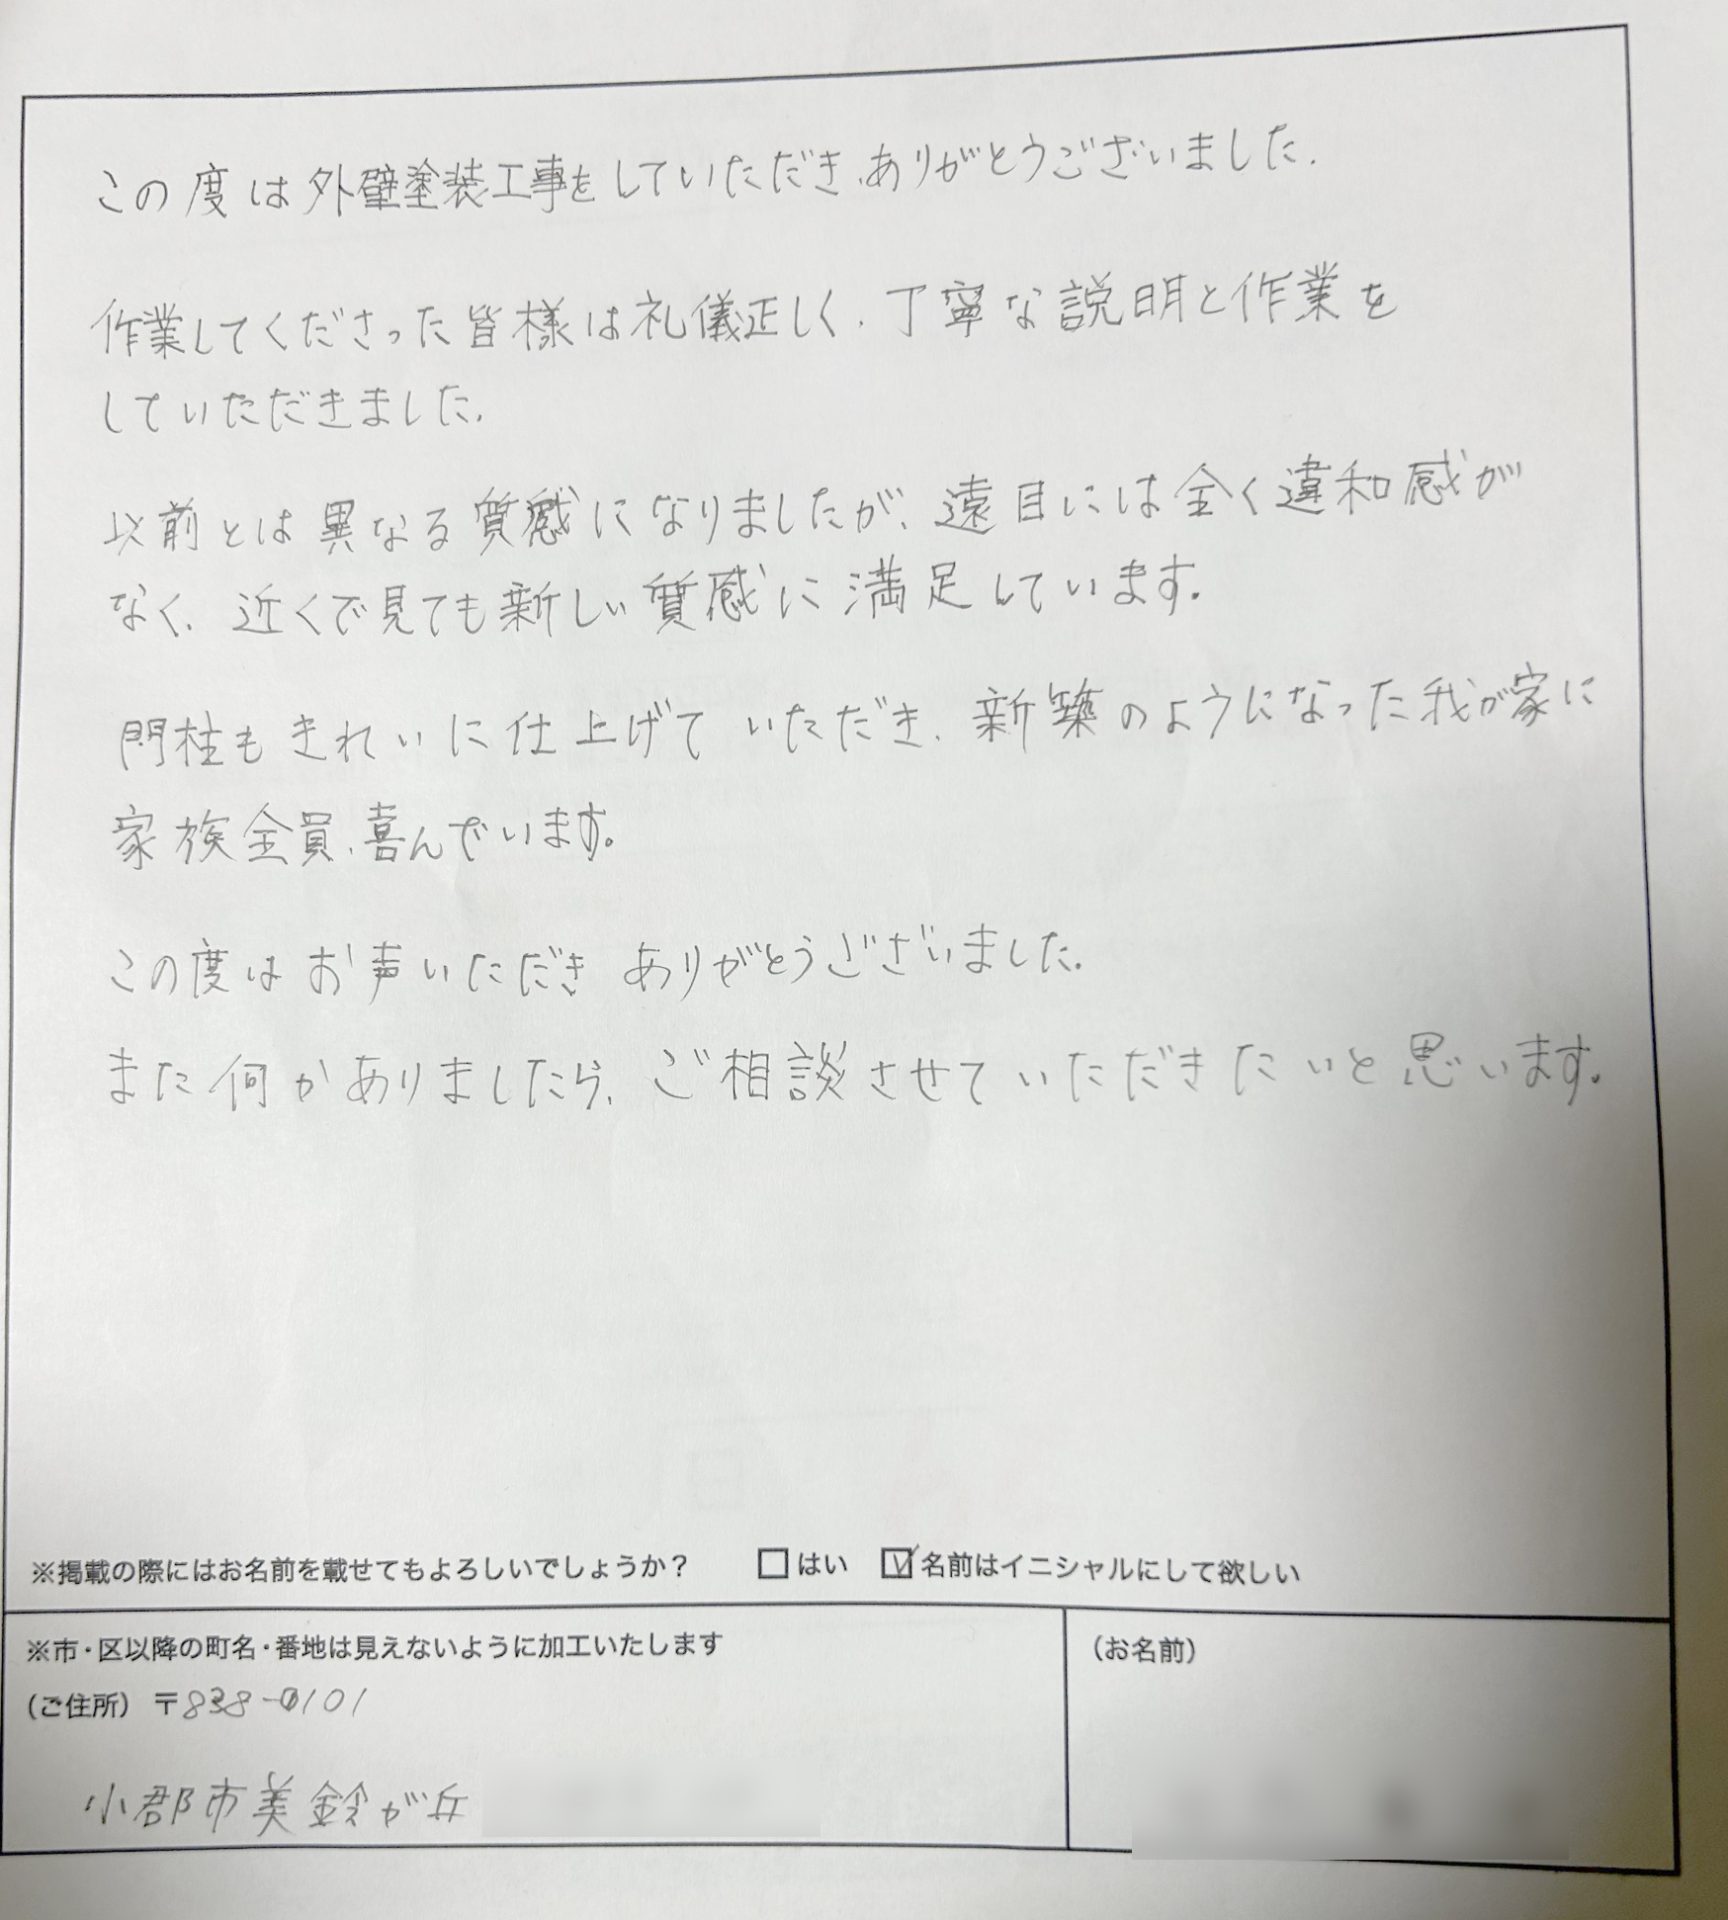 この度は外壁塗装工事をしていただき、ありがとうございました。
作業してくださった皆様は礼儀正しく、丁寧な説明と作業を
していただきました。
以前とは異なる質感になりましたが、遠目には全く違和感が
なく、近くで見ても新しい質感に満足しています。
門柱もきれいに仕上げていただき、新築のようになった我が家に
家族全員、喜んでいます。
この度はお声いただき ありがとうございました。
また何かありましたら、ご相談させていただきたいと思います。
※掲載の際にはお名前を載せてもよろしいでしょうか？ □はい ☑名前はイニシャルにして欲しい
※市・区以降の町名・番地は見えないように加工いたします
（ご住所）〒838-0101
小郡市美鈴が丘
（お名前）